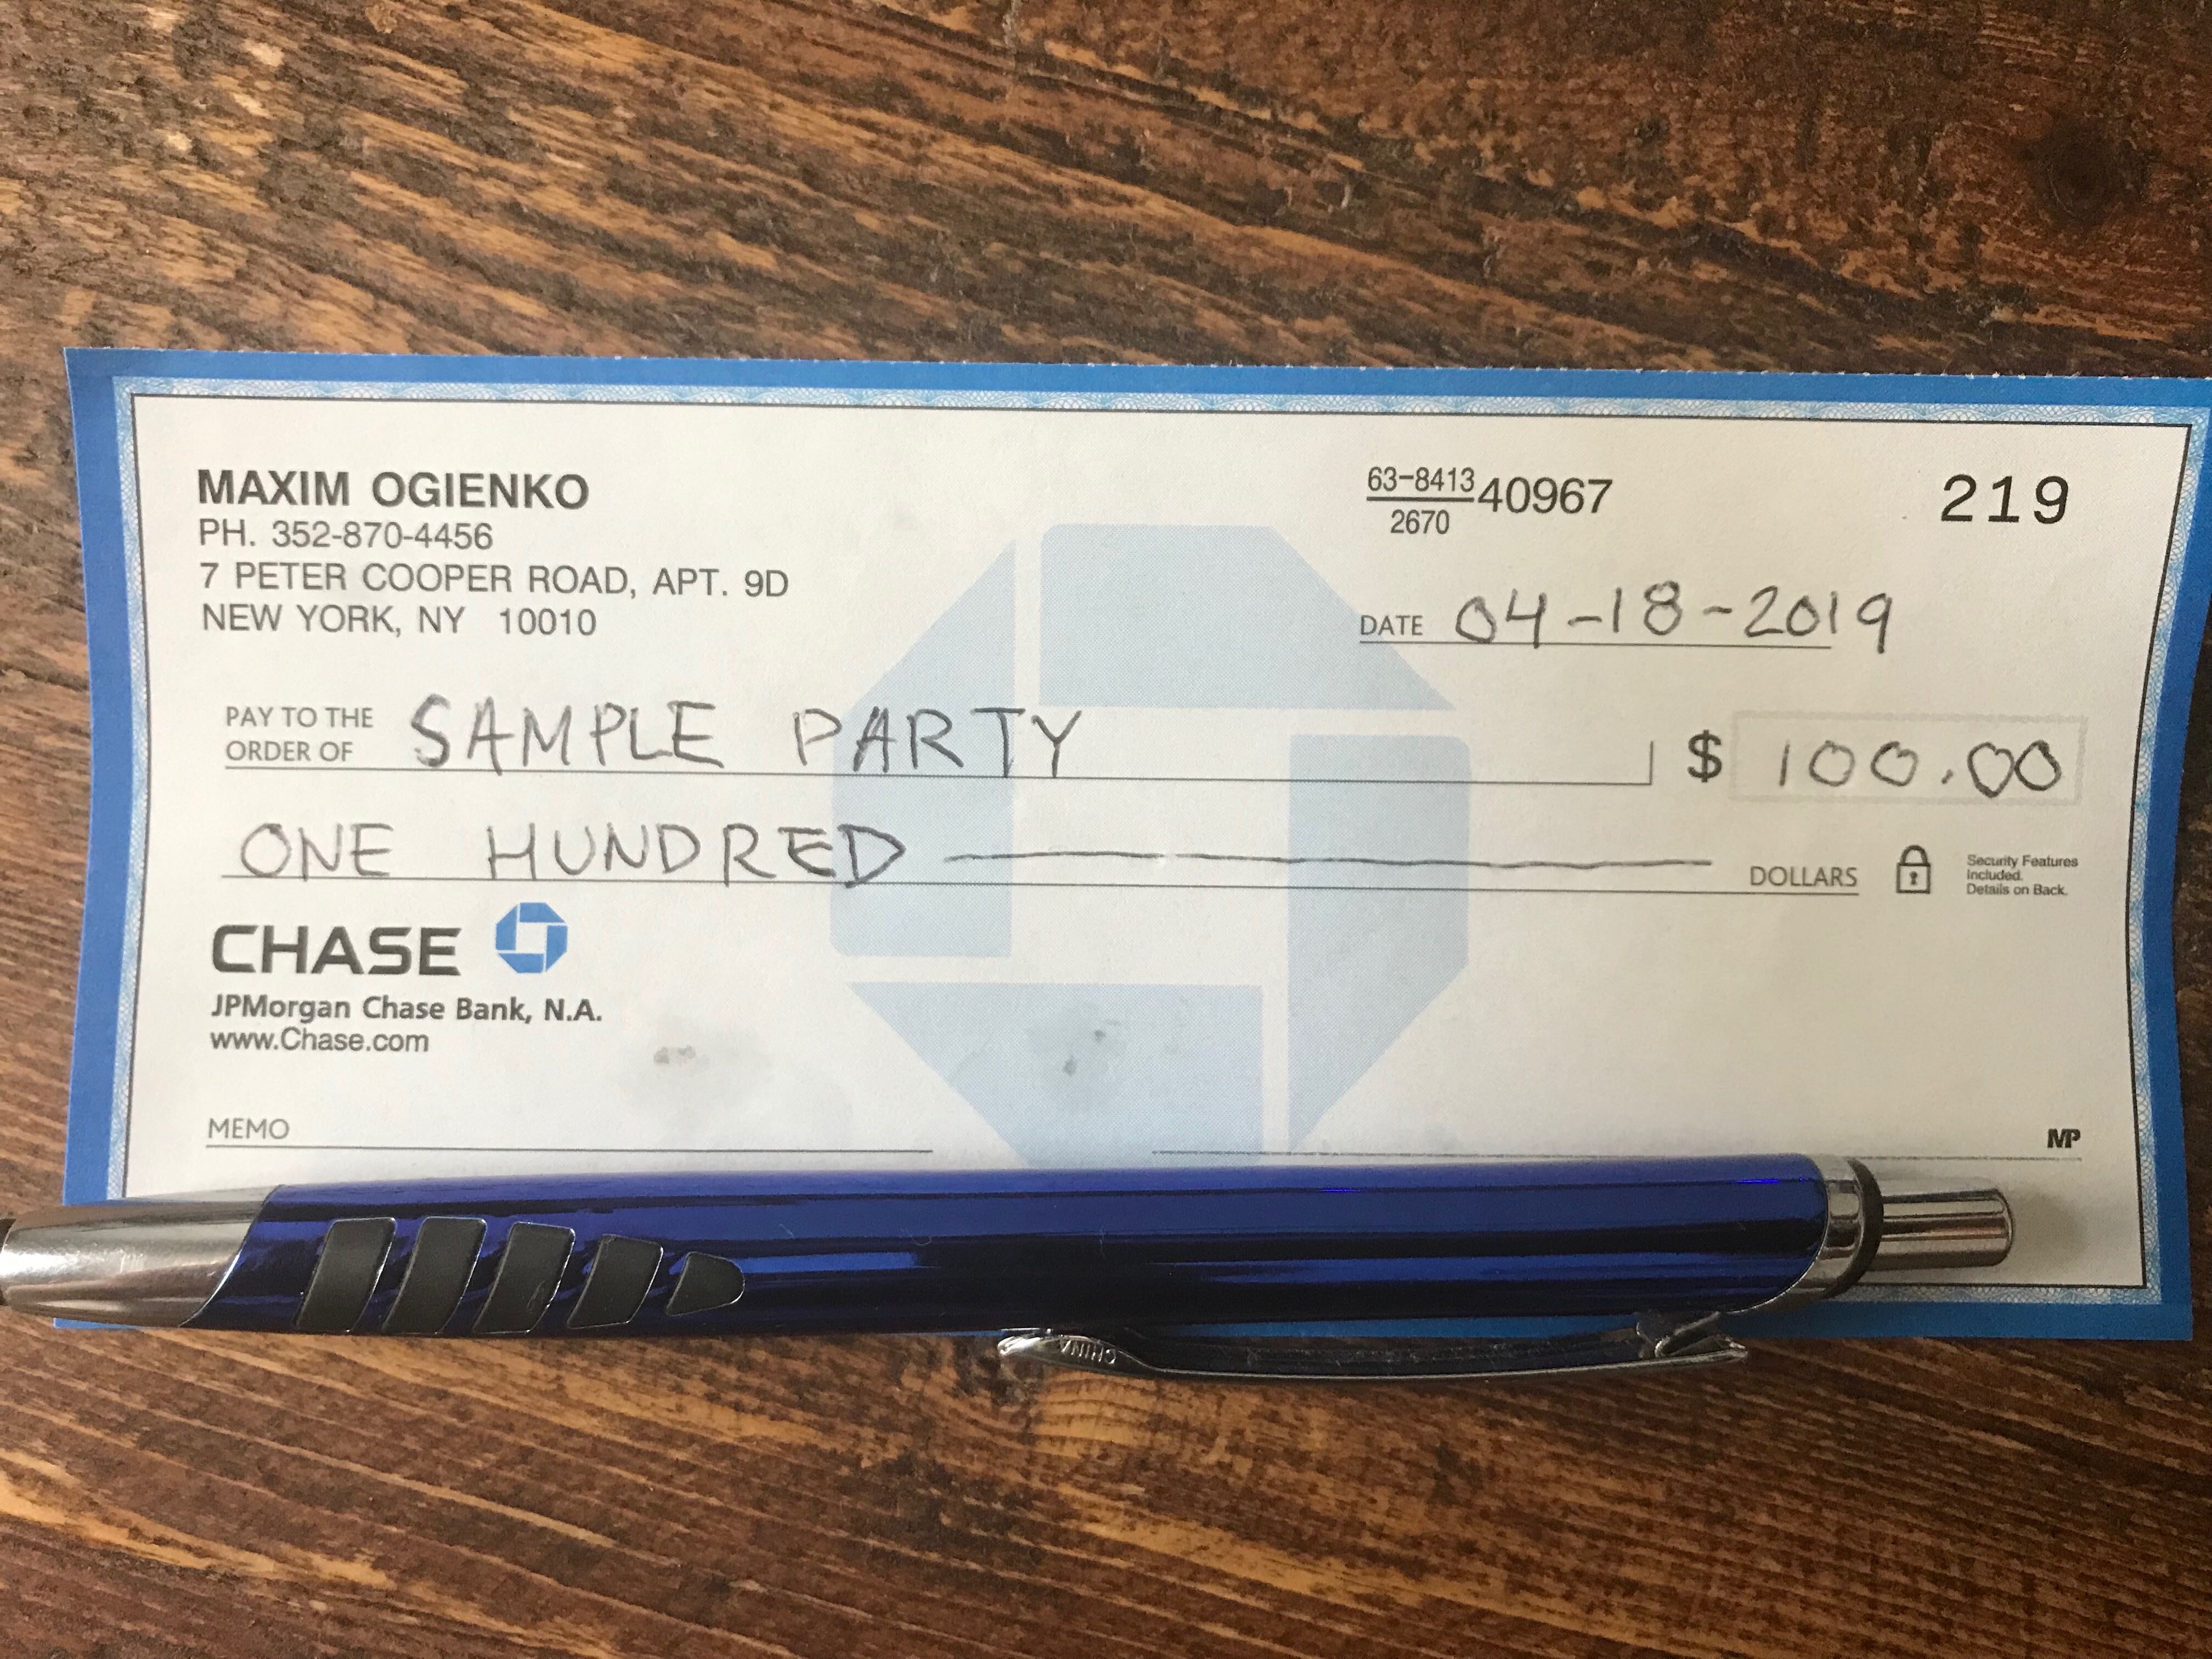 MAXIM OGIENKO
PH. 352-870-4456
7 PETER COOPER ROAD, APT. 9D
NEW YORK, NY 10010
63-8413
2670
40967
219
DATE 04-18-2019
PAY TO THE
ORDER OF
SAMPLE PARTY
$ 100.00
ONE HUNDRED
DOLLARS
Security Features
Included.
Details on Back.
CHASE
JPMorgan Chase Bank, N.A.
www.Chase.com
MEMO
MP
CHINA